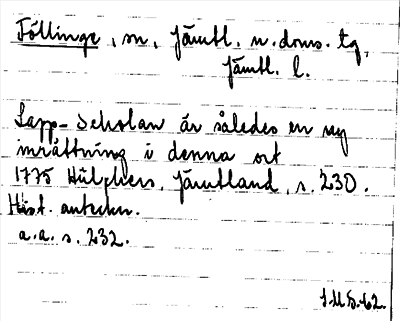 Föllinge, sn, Jämtl. n. doms. tg,
Jämtl. l.
Lapp-Scholan är således en ny
inrättning i denna ort
1775 Hülphers, Jämtland, s. 230.
Hist. anteckn.
a.a. s. 232.